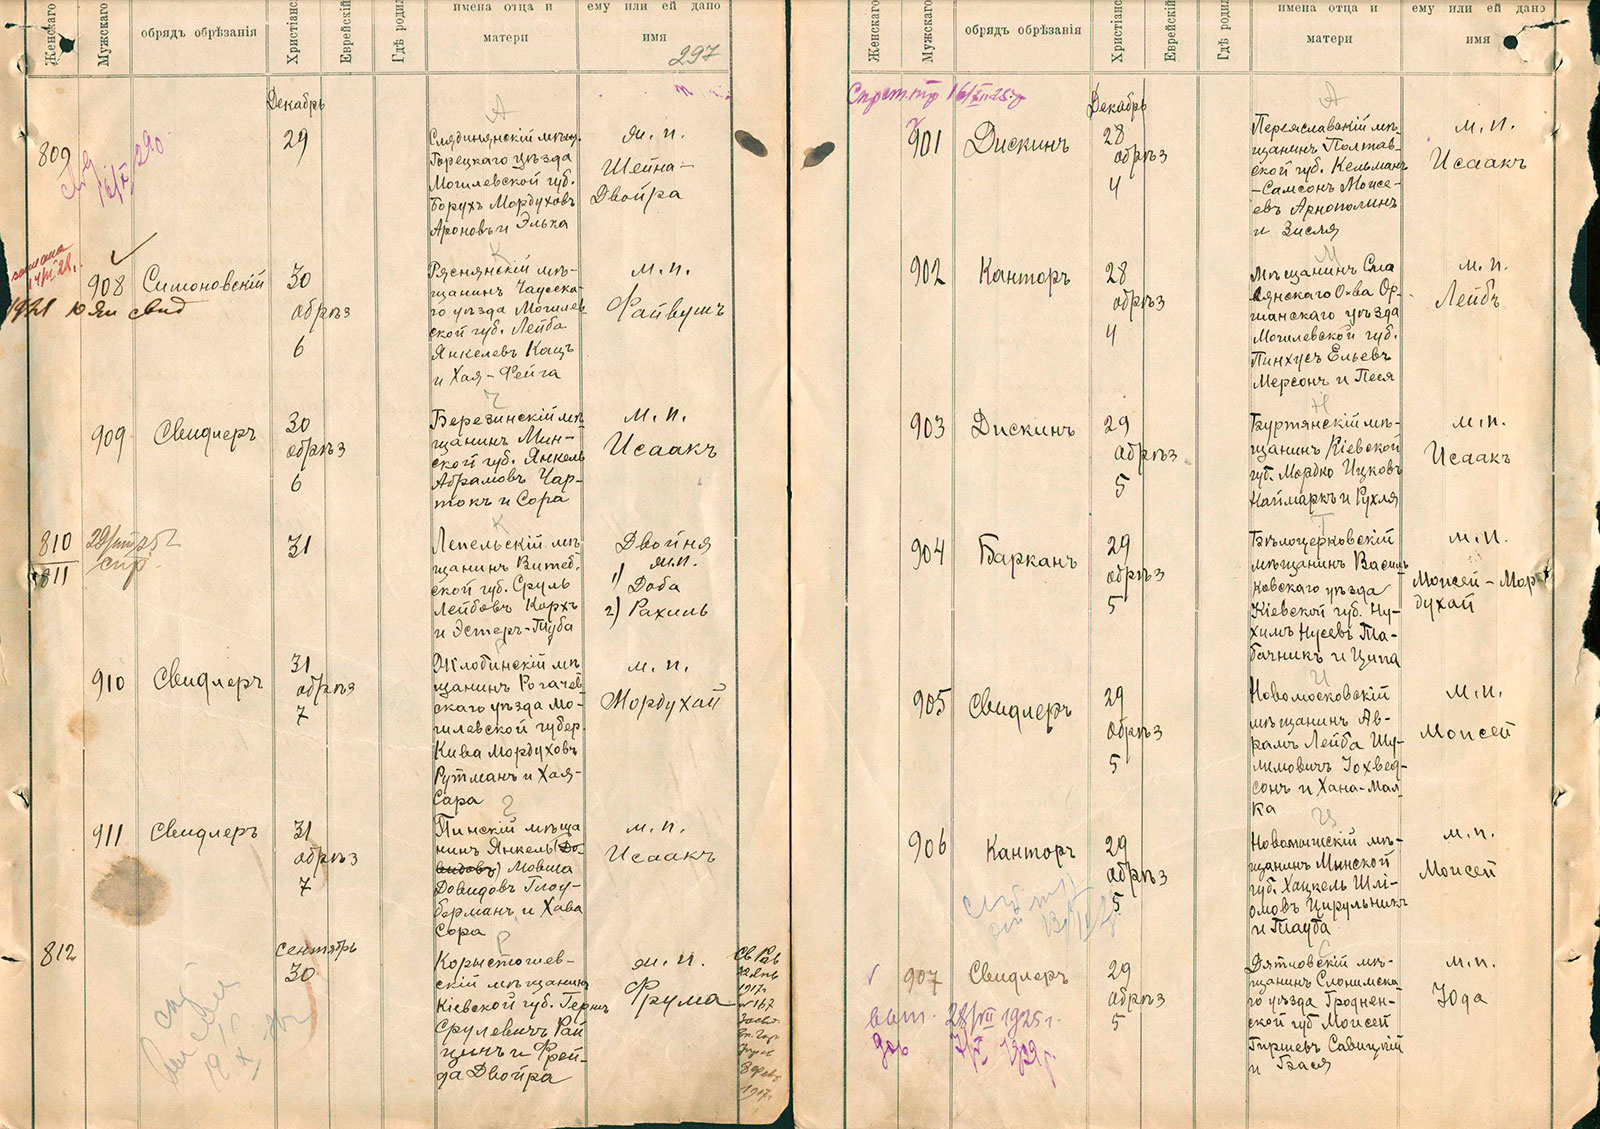 Женскаго
Мужскаго
обрядъ обрѣзанія
Еврейскій
имена отца и
матери
ему или ей дано
имя
297
Декабрь
809
29
А
Горецкаго уѣзда
Могилевской губ.
Борухъ Мордуховъ
Ароновъ и Элька
ж. п.
Шейна-
Двойра
908
Симоновскій
30
обрѣз
6
К
Ряснянскій мѣ-
щанинъ Чаусска-
го уѣзда Могилев
ской губ. Лейба
Янкелевъ Кацъ
и Хая-Фейга
м. п.
Файвушъ
909
Свидлеръ
30
обрѣз
6
Ч
Березинскій мѣ
щанинъ Мин-
ской губ. Янкель
Абрамовъ Чар-
токъ и Сора
м. п.
Исаакъ
810
811
31
К
Лепельскій мѣ
щанинъ Витеб.
ской губ. Сруль
Лейбовъ Корхъ
и Эстеръ-Туба
Двойня
ж.п.
1) Доба
2) Рахиль
910
Свидлеръ
31
обрѣз
7
Р
Жлобинскій мѣ
щанинъ Рогачев
скаго уѣзда Мо-
гилевской губер.
Кива Мордуховъ
Рутманъ и Хая-
Сара
м. п.
Мордухай
911
Свидлеръ
31
обрѣз
7
Пинскій мѣща
нинъ Янкель
Мовша
Довидовъ
берманъ и Хава
Сора
м. п.
Исаакъ
812
сентябрь
30
Р
скій мѣщанинъ
Кіевской губ. Герш
Срулевичъ Рай
цинъ и Фрей-
да Двойра
ж. п.
Фрума
1917г
Женскаго
Мужскаго
обрядъ обрѣзанія
Еврейскій
имена отца и
матери
ему или ей дано
имя
Декабрь
901
Дискинъ
28
обрѣз
4
А
Переяславскій мѣ-
щанинъ Полтав-
ской губ. Кельманъ
-Самсонъ Моисе-
евъ Арнополинъ
и Зисля
м. п.
Исаакъ
902
Канторъ
28
обрѣз
4
М
Мѣщанинъ Сла
вянскаго О-ва Ор-
шанскаго уѣзда
Могилевской губ.
Пинхусъ Ельевъ
Мерсонъ и Песя
м. п.
Лейбъ
903
Дискинъ
29
обрѣз
5
Н
Буртянскій мѣ-
щанинъ Кіевской
губ. Мордко Ицковъ
Наймаркъ и Рухля
м. п.
Исаакъ
904
Барканъ
29
обрѣз
5
Т
Бѣлоцерковскій
мѣщанинъ Василь
ковскаго уѣзда
Кіевской губ. Ну-
химъ Нусевъ Та-
бачникъ и Ципа
м. п.
Моисей-Мор
духай
905
Свидлеръ
29
обрѣз
5
И
Новомосковскій
мѣщанинъ Ав-
рамъ Лейба Шу-
лимовичъ Іохвед-
сонъ и Хана-Мал
ка
м. п.
Моисей
906
Канторъ
29
обрѣз
5
Ц
Новомышскій мѣ-
щанинъ Минской
губ. Хацкель Шлі-
омовъ Цирульникъ
и Тауба
м. п.
Моисей
907
Свидлеръ
29
обрѣз
5
С
Дятловскій мѣ-
щанинъ Слонимска-
го уѣзда Гроднен-
ской губ Моисей
Гиршевъ Савицкій
и Бася
м. п.
Юда